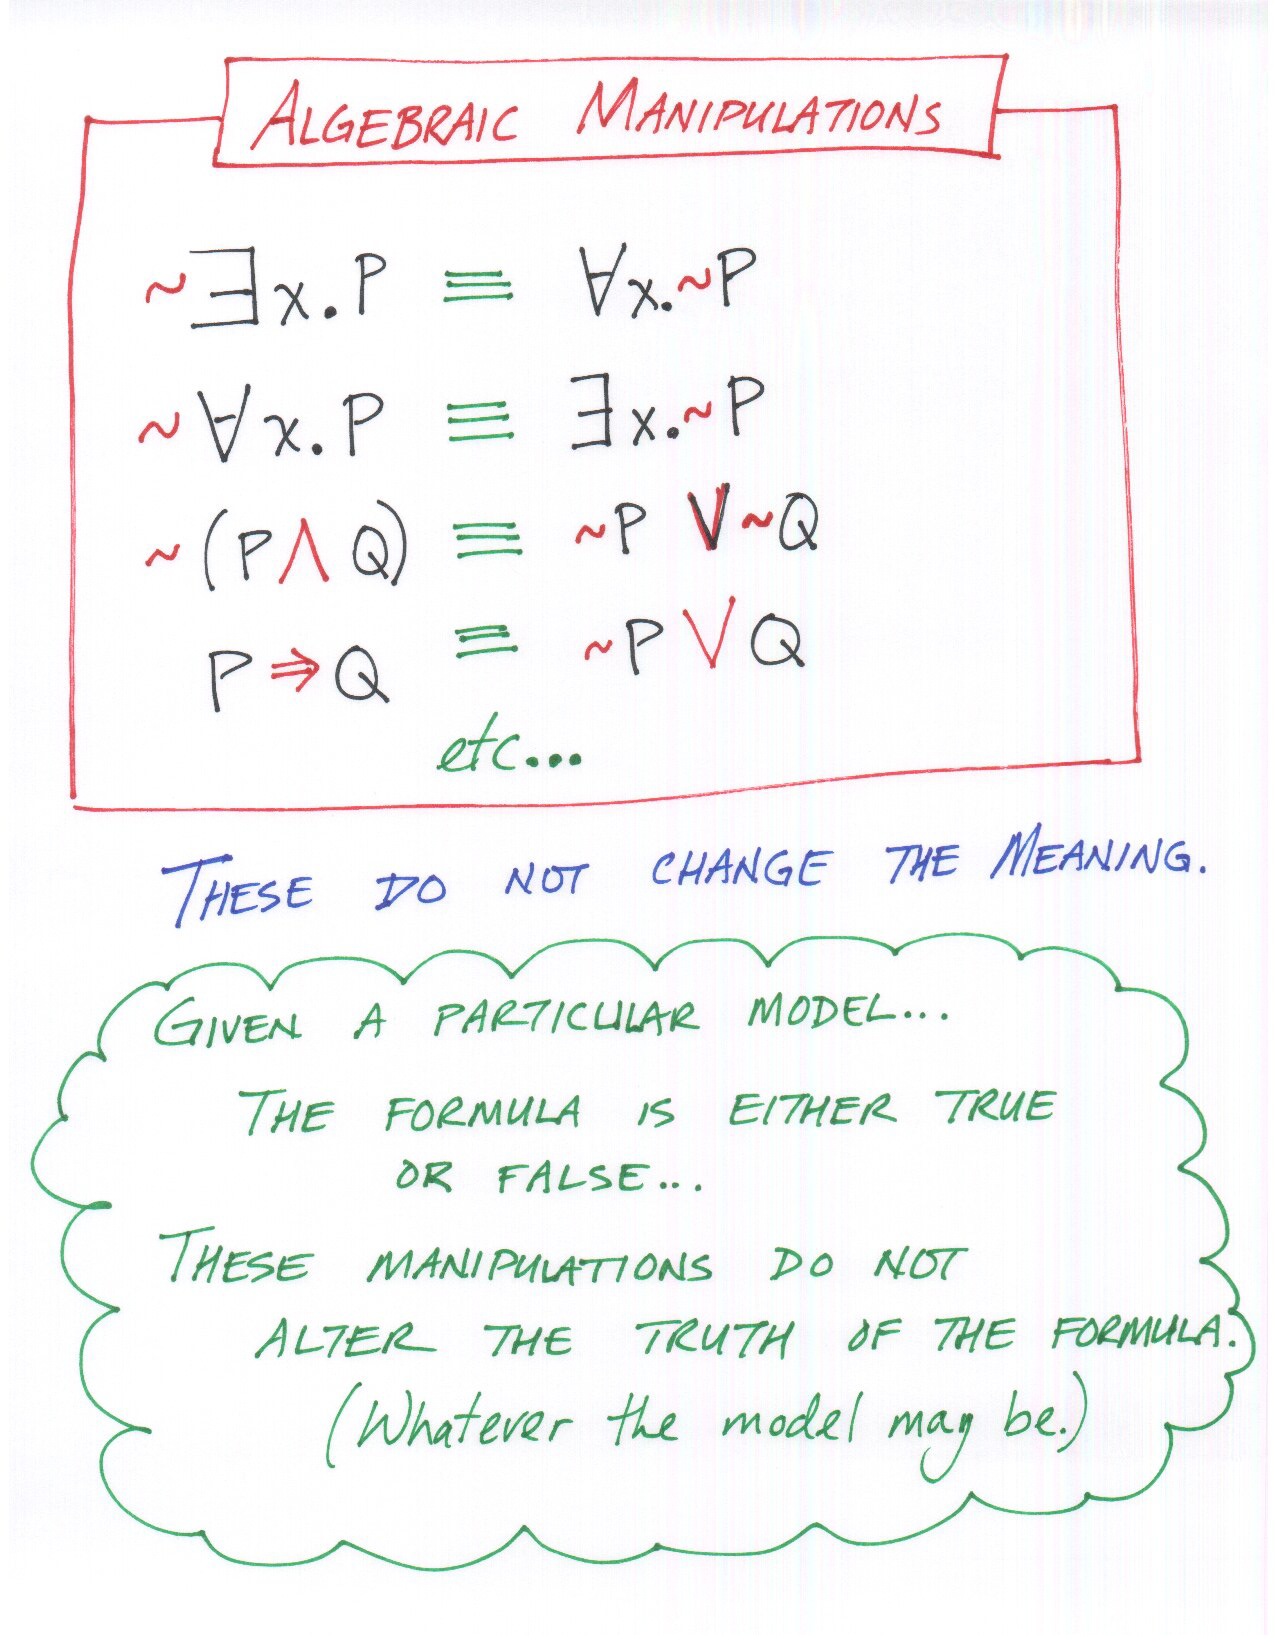 ALGEBRAIC MANIPULATIONS
~∃x.P ≡ ∀x.~P
~∀x.P ≡ ∃x.~P
~(P∧Q) ≡ ~P ∨ ~Q
P⇒Q ≡ ~P ∨ Q
etc...
THESE DO NOT CHANGE THE MEANING.
GIVEN A PARTICULAR MODEL...
THE FORMULA IS EITHER TRUE
OR FALSE...
THESE MANIPULATIONS DO NOT
ALTER THE TRUTH OF THE FORMULA.
(Whatever the model may be.)